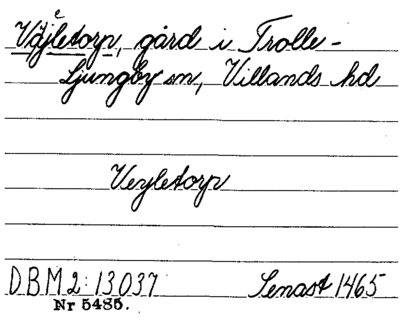 Väjletorp, gård i Trolle-
Ljungby sn, Villands hd
Veyletorp
DBM 2: 13037 Senast 1465
Nr 5485.